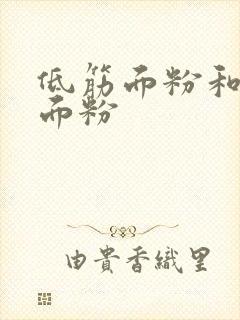 低筋而粉和
而粉
由貴香織里